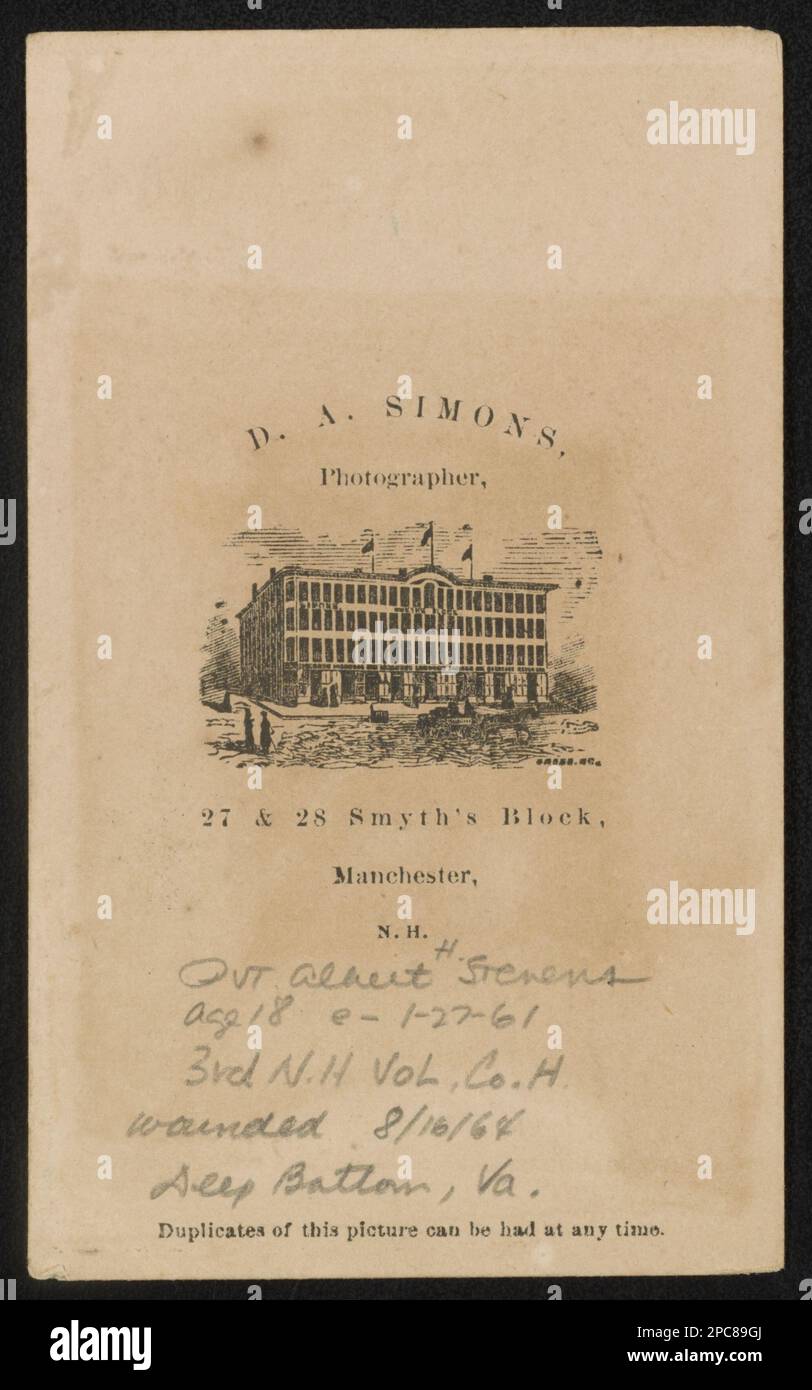 D. A. SIMONS,
Photographer,
27 & 28 Smyth's Block,
Manchester,
N. H.
Pvt. Albert H. Stevens
age 18 e- 1-27-61
3rd N.H Vol, Co. H.
wounded 8/16/64
Deep Bottom, Va.
Duplicates of this picture can be had at any time.
alamy
alamy
alamy
alamy
Image ID: 2PC89GJ
www.alamy.com